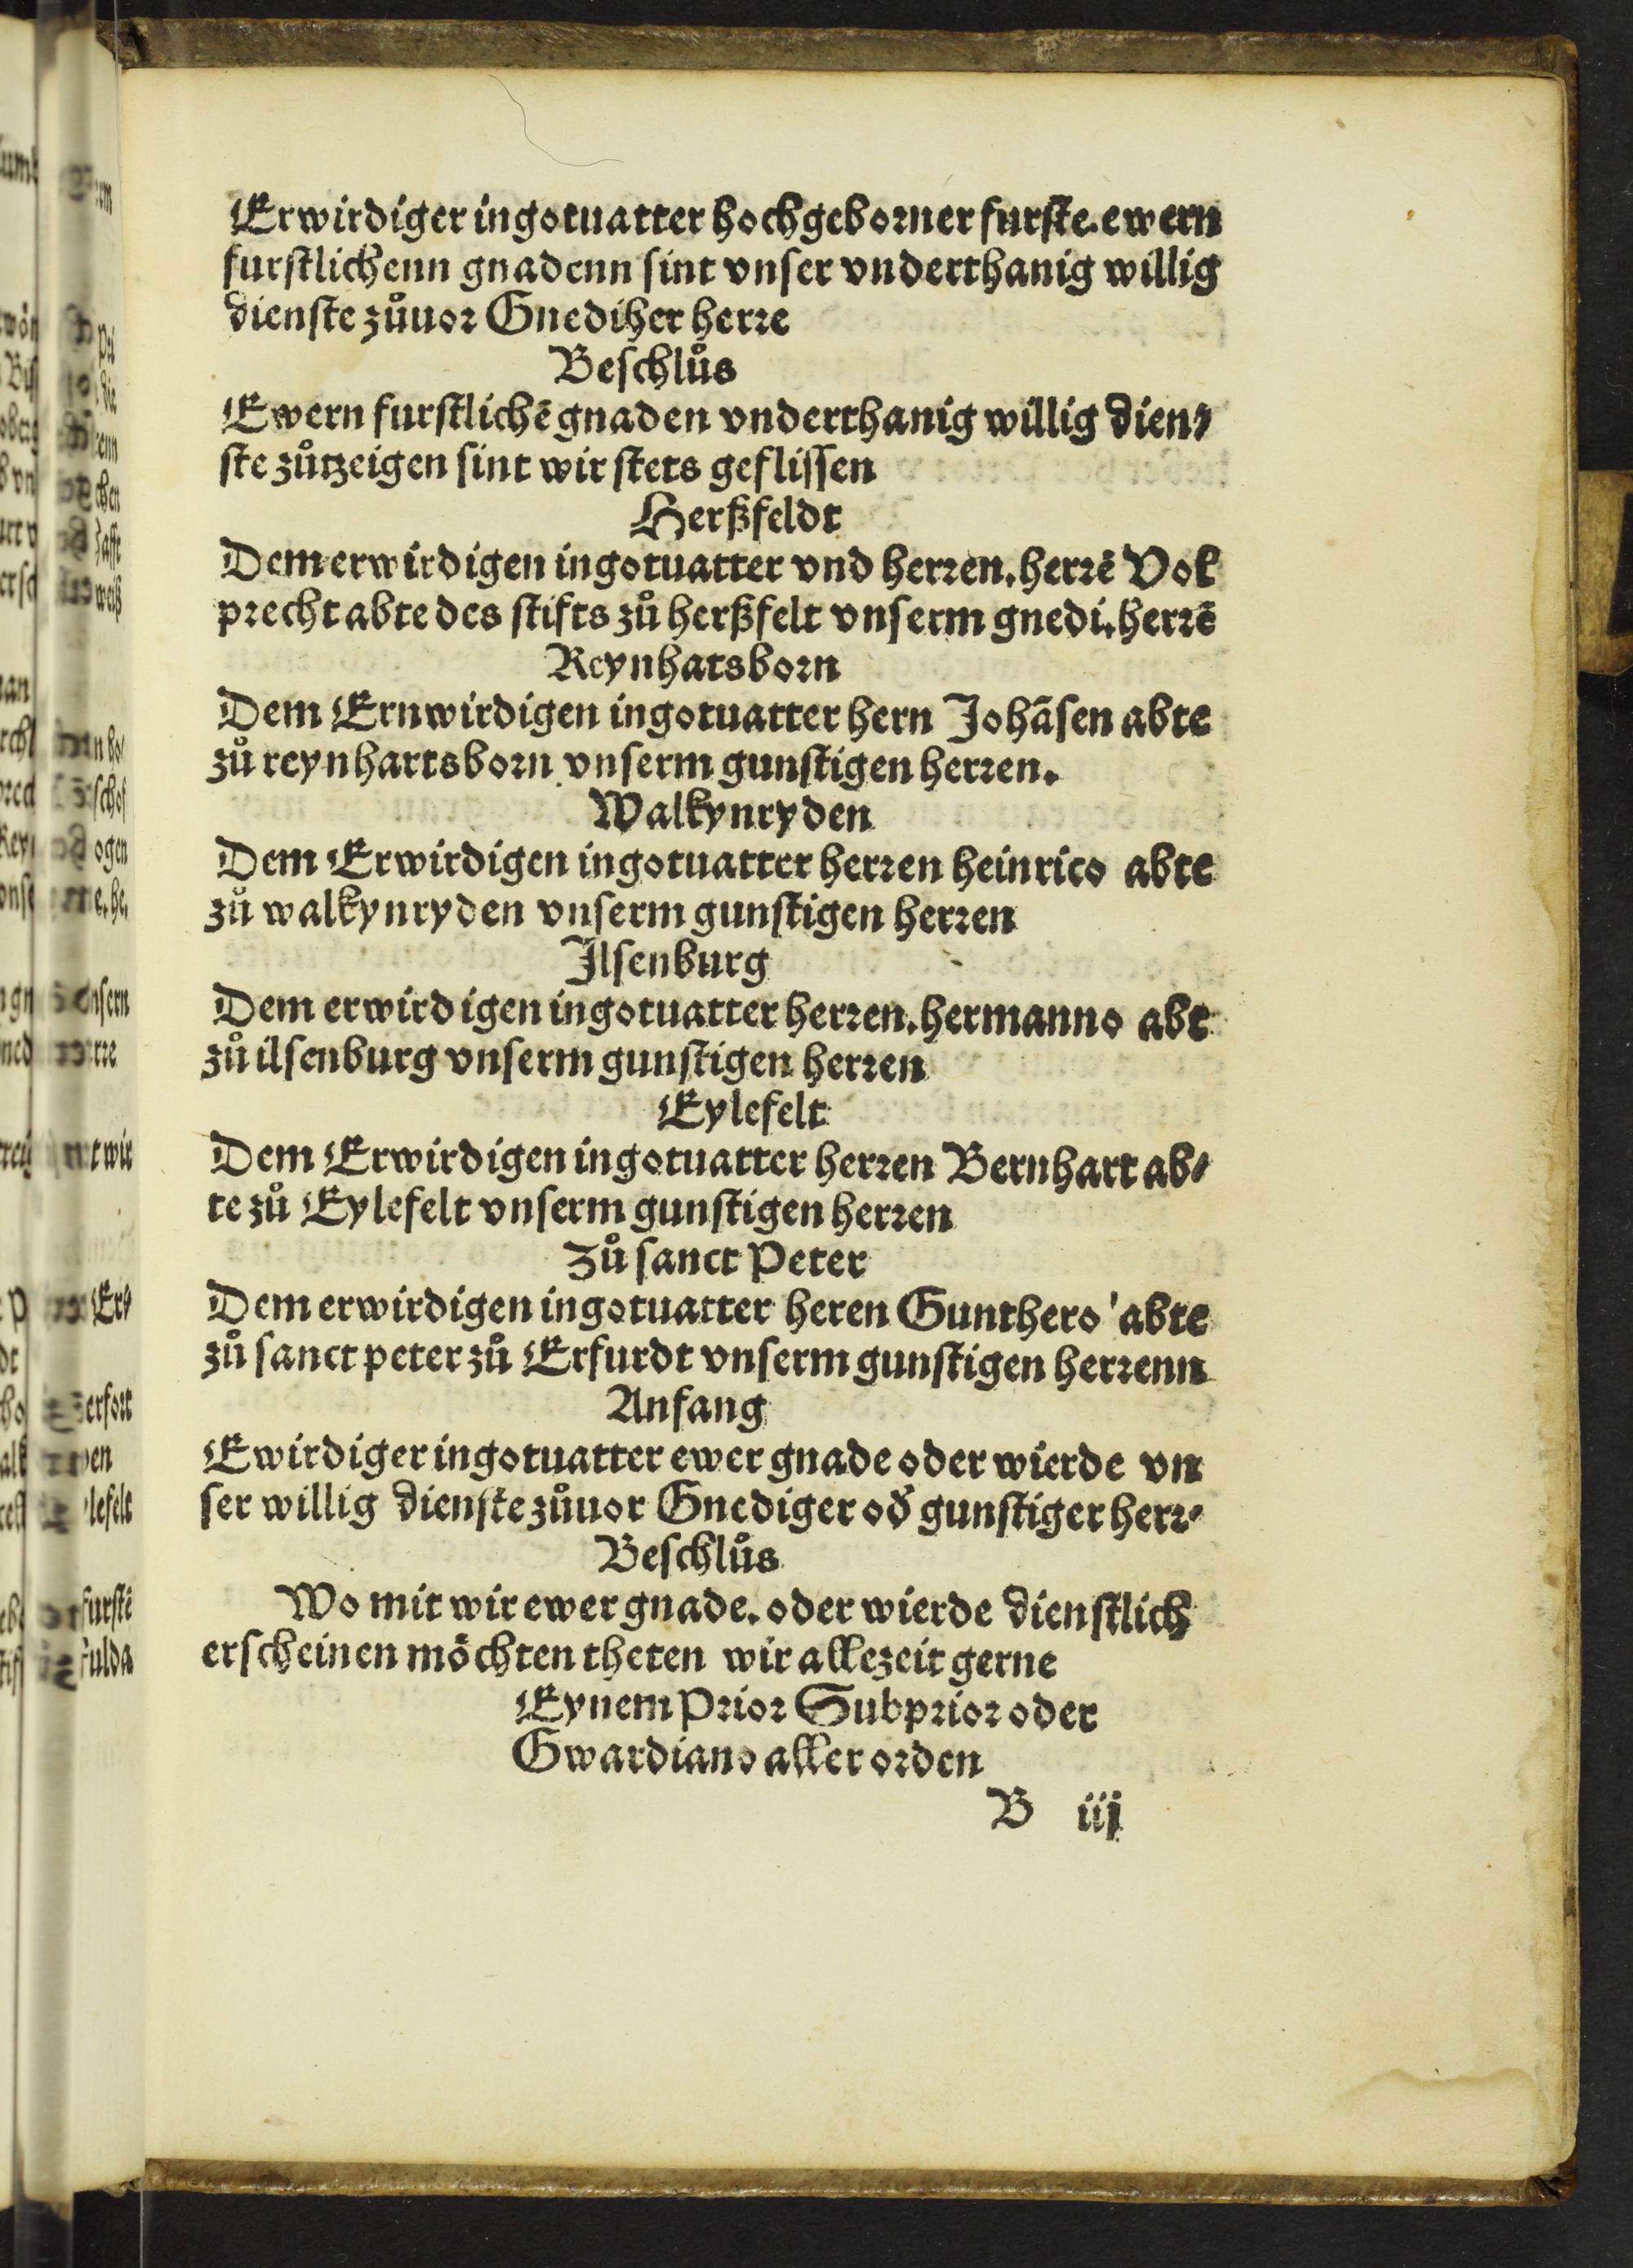 Erwirdiger ingotuatter hochgeborner furste. ewern
furstlichenn gnadenn sint vnser vnderthanig willig
dienste zůuor Gnediher herre
Beschlůs
Ewern furstlichē gnaden vnderthanig willig dien⸗
ste zůtzeigen sint wir stets geflissen
Herßfeldt
Dem erwirdigen ingotuatter vnd herren. herrē Vol
precht abte des stifts zů herßfelt vnserm gnedi. herrē
Reynhatsborn
Dem Ernwirdigen ingotuatter hern Johãsen abte
zů reynhartsborn vnserm gunstigen herren.
Walkynryden
Dem Erwirdigen ingotuatter herren heinrico abte
zů walkynryden vnserm gunstigen herren
Jlsenburg
Dem erwirdigen ingotuatter herren. hermanno abt
zů ilsenburg vnserm gunstigen herren
Eylefelt
Dem Erwirdigen ingotuatter herren Bernhart ab⸗
te zů Eylefelt vnserm gunstigen herren
Zů sanct Peter
Dem erwirdigen ingotuatter heren Gunthero' abte
zů sanct peter zů Erfurdt vnserm gunstigen herrenn
Anfang
Ewirdiger ingotuatter ewer gnade oder wierde vn
ser willig dienste zůuor Gnediger od̕ gunstiger herr⸗
Beschlůs
Wo mit wir ewer gnade. oder wierde dienstlich
erscheinen möchten theten wir allezeit gerne
Eynem Prior Subprior oder
Gwardiano aller orden
B iij